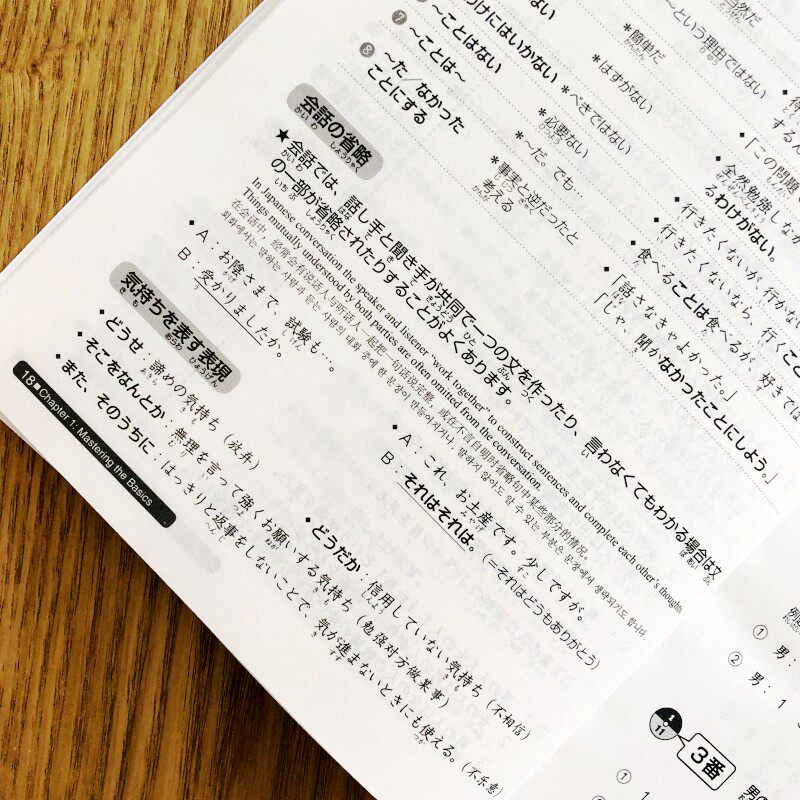 当然だ
～という理由ではない
わけにはいかない
*簡単だ
*はずがない
*べきではない
❼ ～ことはない
*必要ない
～ことは～
*～だ。でも…
❽ ～た／なかった
ことにする
*事実と逆だったと
考える
「この問題
全然勉強しな
るわけがない。
・行きたくないが、行かない
行きたくないなら、行くこと
・食べることは食べるが、好きでは
・「話さなきゃよかった。」
「じゃ、聞かなかったことにしよう。」
会話の省略
★会話では、話し手と聞き手が共同で一つの文を作ったり、言わなくてもわかる場合は文
の一部が省略されたりすることがよくあります。
In Japanese conversation the speaker and listener "work together" to construct sentences and complete each other's thoughts.
Things mutually understood by both parties are often omitted from the conversation.
在会话中，经常会有说话人与听话人一起把一句话说完整，或在不言自明时省略句中某些部分的情况。
회화에서는 말하는 사람과 듣는 사람의 대화 중에 한 문장이 만들어지거나, 말하지 않아도 알 수 있는 부분은 문장에서 생략되기도 합니다.
・A：お陰さまで、試験も…。
B：受かりましたか。
・A：これ、お土産です。少しですが。
B：それはそれは。（＝それはどうもありがとう）
気持ちを表す表現
・どうせ：諦めの気持ち（放弃）
・どうだか：信用していない気持ち（不相信）
・そこをなんとか：無理を言って強くお願いする気持ち（勉强对方做某事）
・また、そのうちに：はっきりと返事をしないことで、気が進まないときにも使える。（不乐意）
18■Chapter 1: Mastering the Basics
① 男：
② 男：1
1
11
3番
①
②